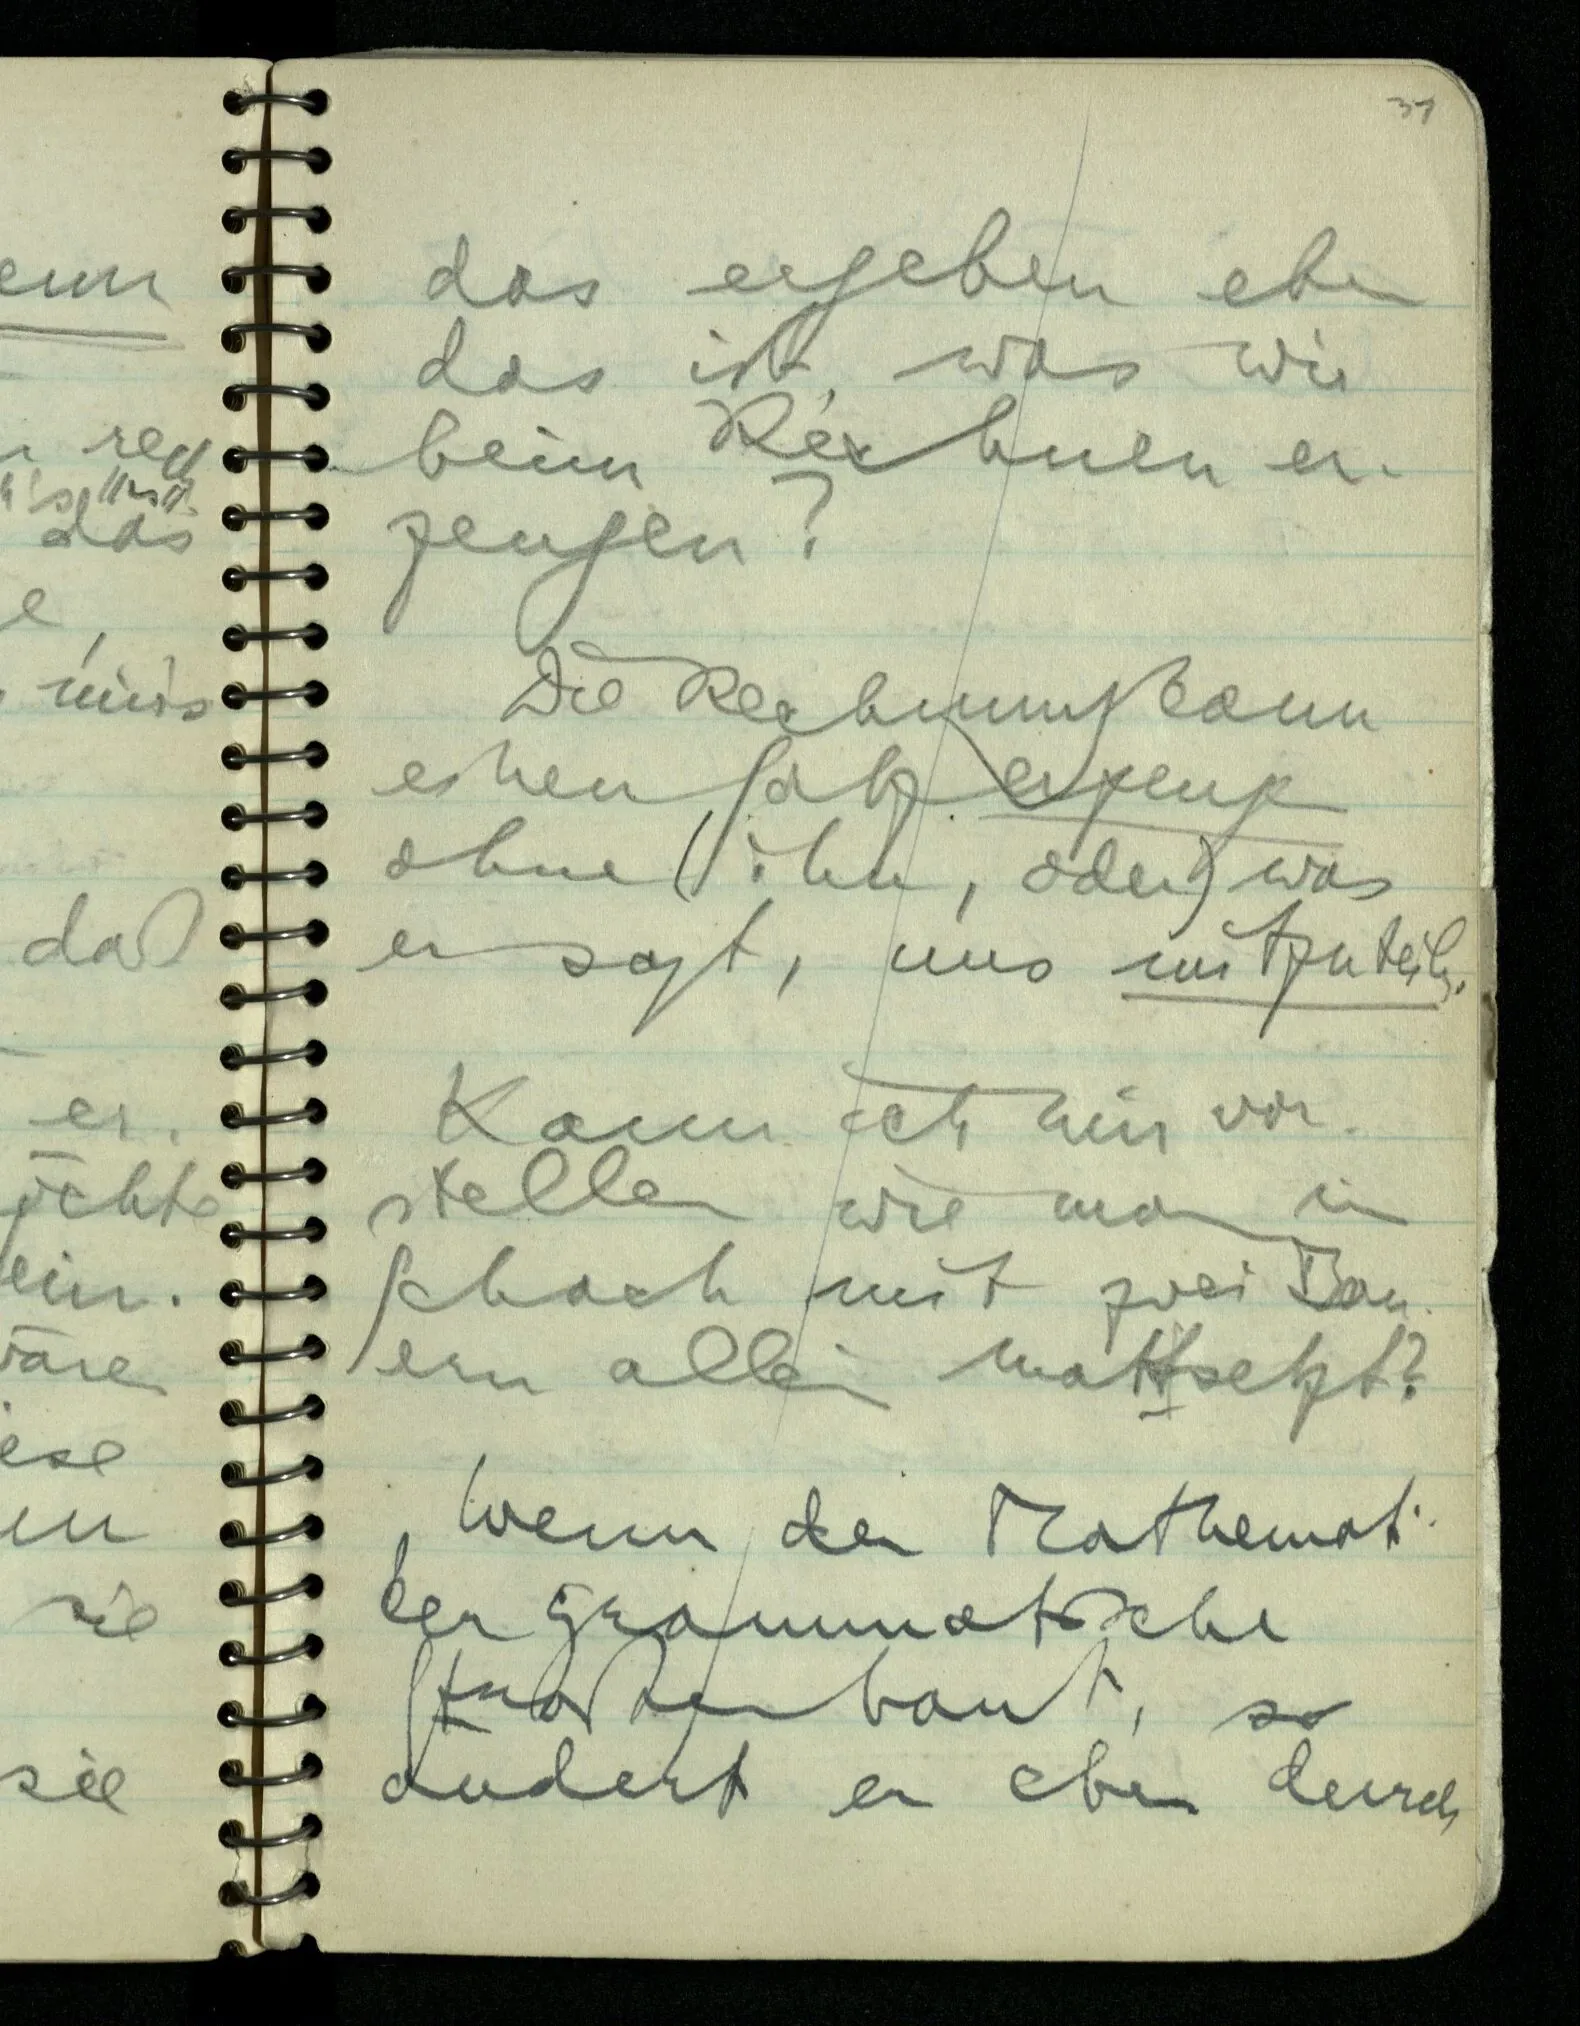 enn
das
e,
uns
daß
er.
öchte
ein.
wäre
iese
en
sie
sie
31
das ergeben eben
das ist, was wir
beim Rechnen er-
zeugen?
Die Rechnung kann
einen Satz erzeug
ohne (ihn, oder) was
er sagt, uns mitzuteil.
Kann ich mir vor-
stellen wie man im
Schach mit zwei Bau-
ern allein mattsetzt?
Wenn der Mathemati-
ker grammatische
Straßen baut, so
ändert er eben durch